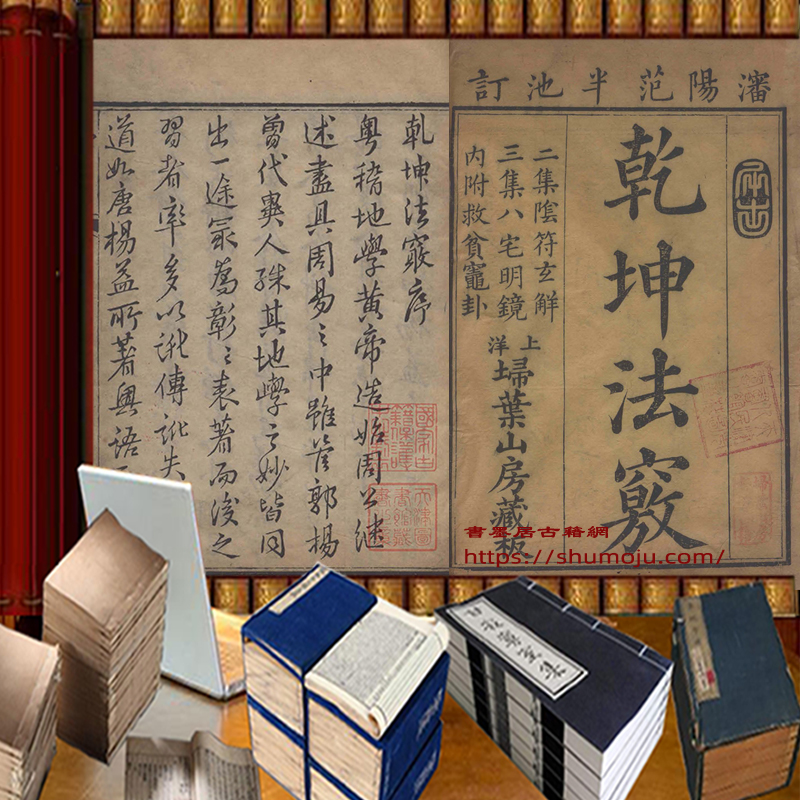 瀋陽范半池訂
乾坤法竅
二集陰符玄解
三集八宅明鏡
內附救貧竈卦
上洋
埽葉山房藏板
乾坤法竅序
粵稽地學黃帝造始周公繼
述盡具周易之中雖管郭楊
曾代異人殊其地學之妙皆同
出一途最為彰之表著而後之
習者率多以訛傳訛失
道如唐楊益所著奧語
書墨居古籍網
https://shumoju.com/